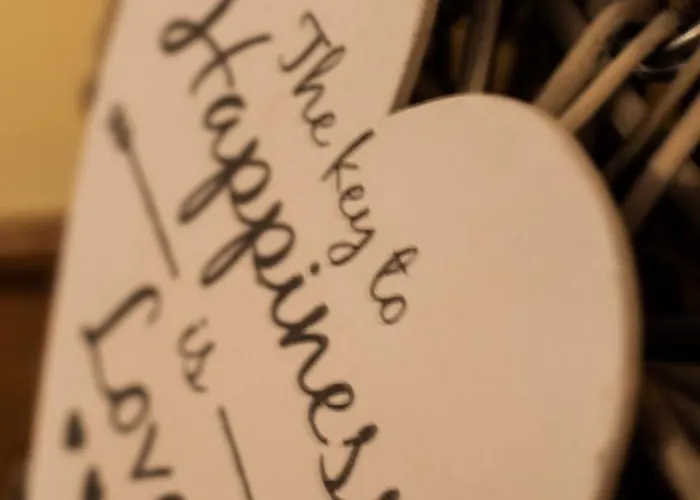 The key to
Happines
is
Lov